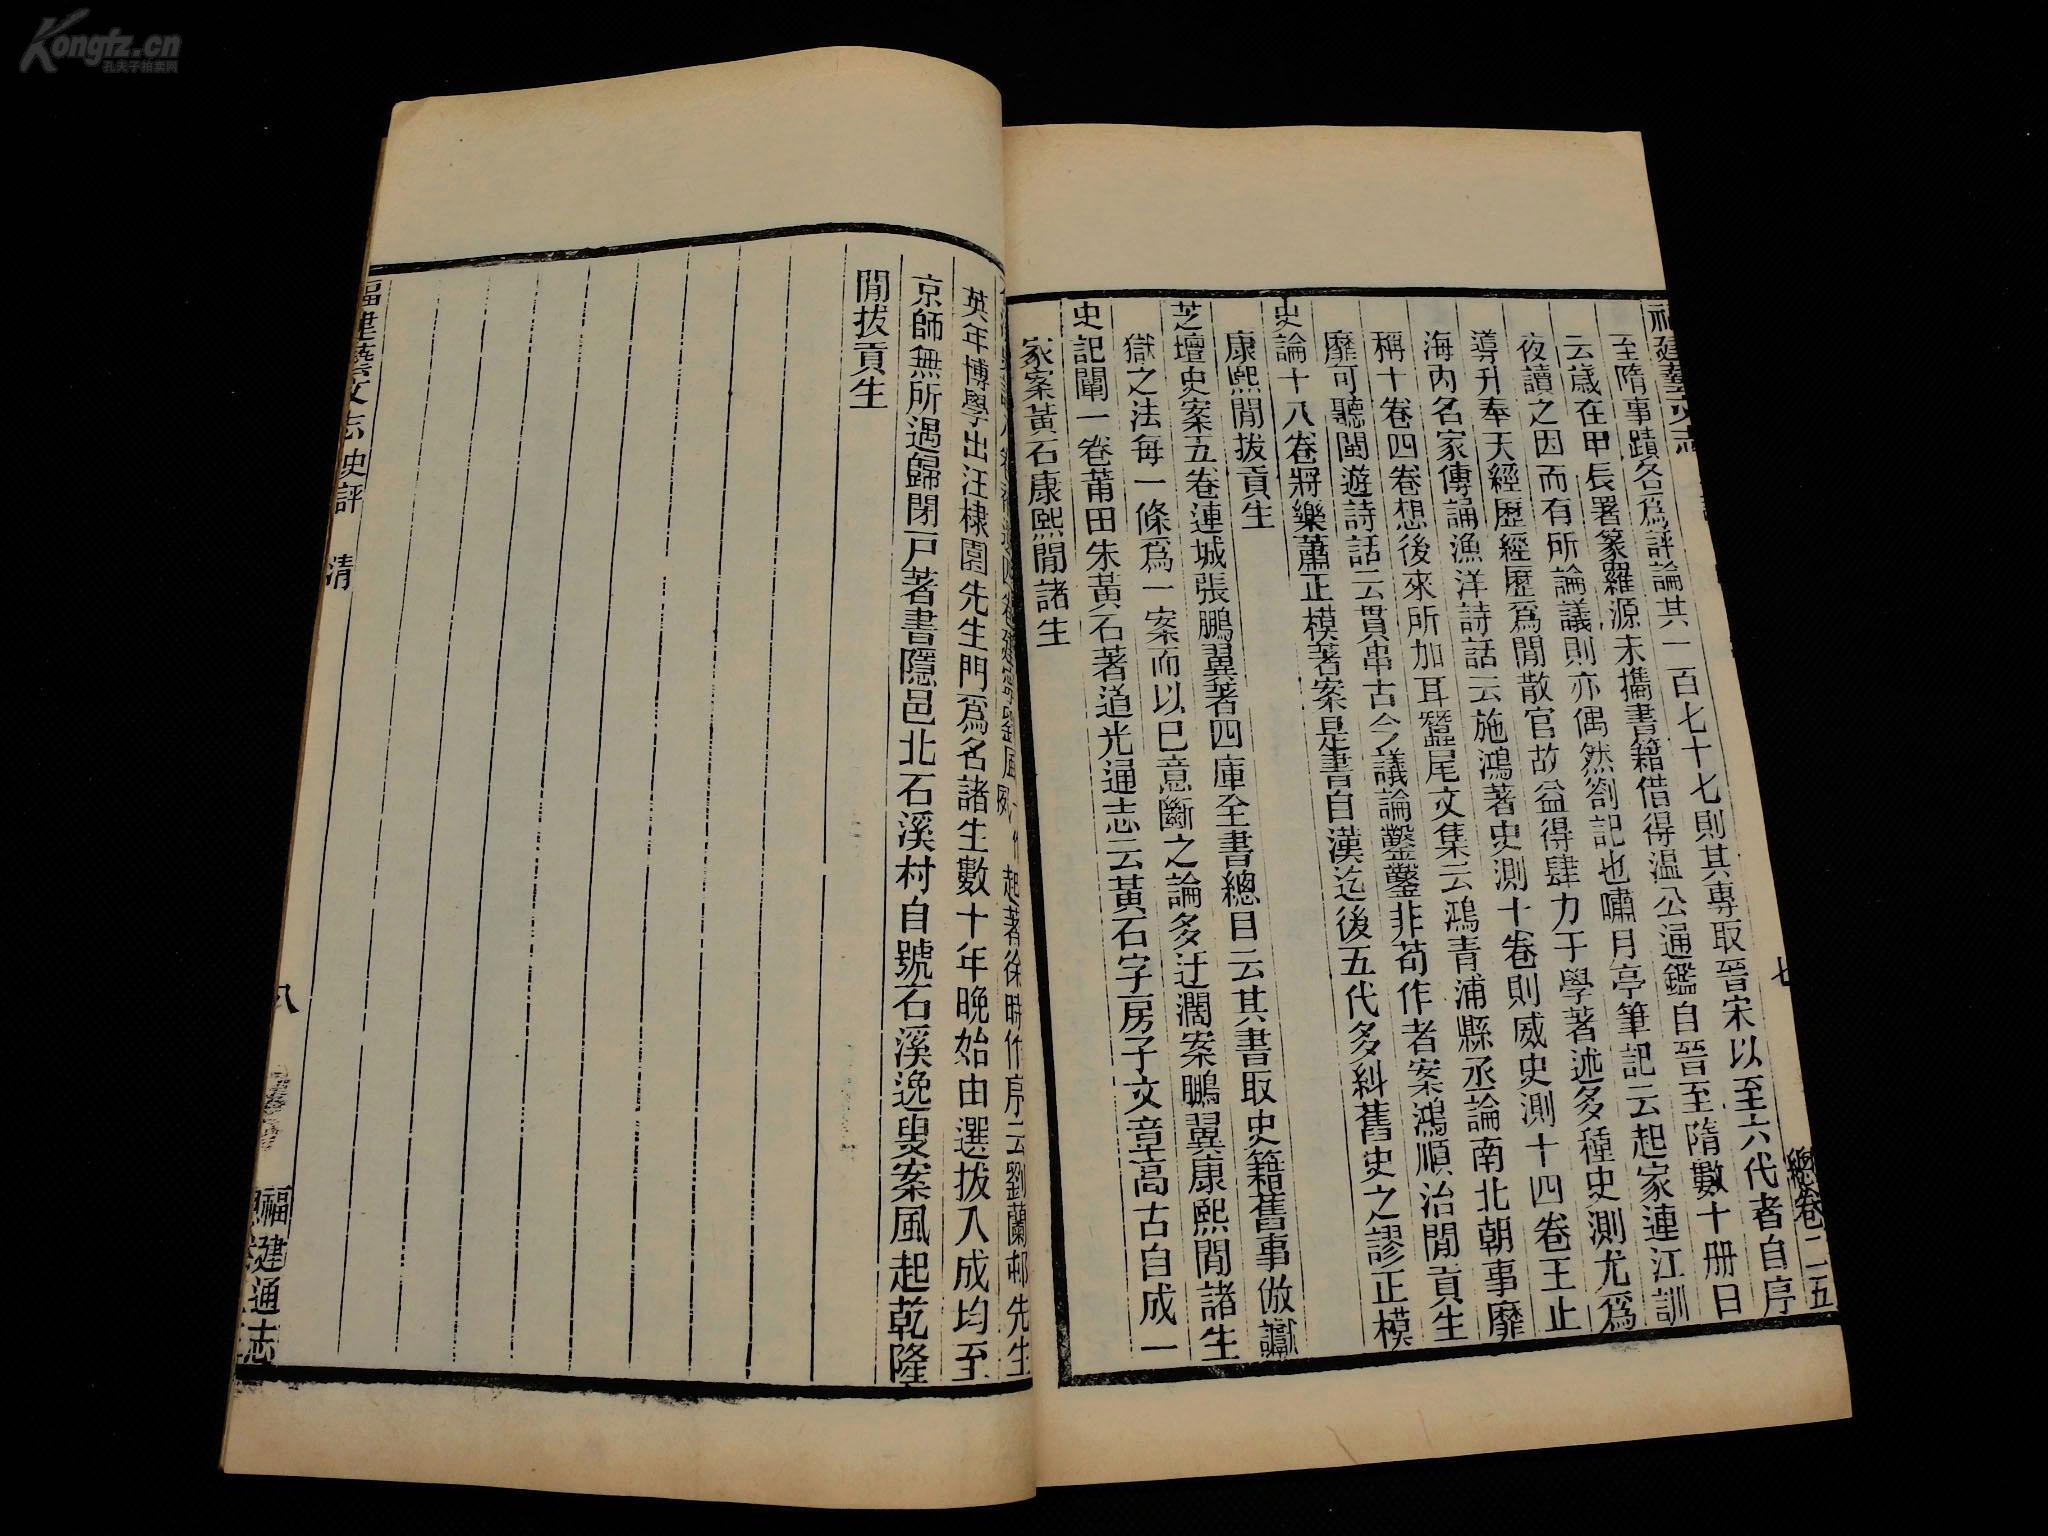 Kongfz.cn
孔夫子拍卖网
建藝文志
七
總卷二五
至隋事蹟各爲評論共一百七十七則其專取晉宋以至六代者自序
云歲在甲長署篆羅源未攜書籍借得温公通鑑自晉至隋數十册日
夜讀之因而有所論議則亦偶然劄記也嘯月亭筆記云起家連江訓
導升奉天經歷經歷爲閒散官故益得肆力于學著述多種史測尤爲
海内名家傳誦漁洋詩話云施鴻著史測十卷則威史測十四卷王止
稱十卷四卷想後來所加耳蠶尾文集云鴻青浦縣丞論南北朝事靡
靡可聽閩遊詩話云貫串古今議論鑿鑿非苟作者案鴻順治閒貢生
史論十八卷將樂蕭正模著案是書自漢迄後五代多糾舊史之謬正模
康熙閒拔貢生
芝壇史案五卷連城張鵬翼著四庫全書總目云其書取史籍舊事倣讞
獄之法每一條爲一案而以已意斷之論多迂濶案鵬翼康熙閒諸生
史記闡一卷莆田朱黃石著道光通志云黃石字房子文章高古自成一
家案黃石康熙閒諸生
起著徐時作序云劉蘭邨先生
英年博學出汪棣園先生門爲名諸生數十年晚始由選拔入成均至
京師無所遇歸閉戸著書隱邑北石溪村自號石溪逸叟案風起乾隆
閒拔貢生
福建藝文志 史評 清
八
福建通志